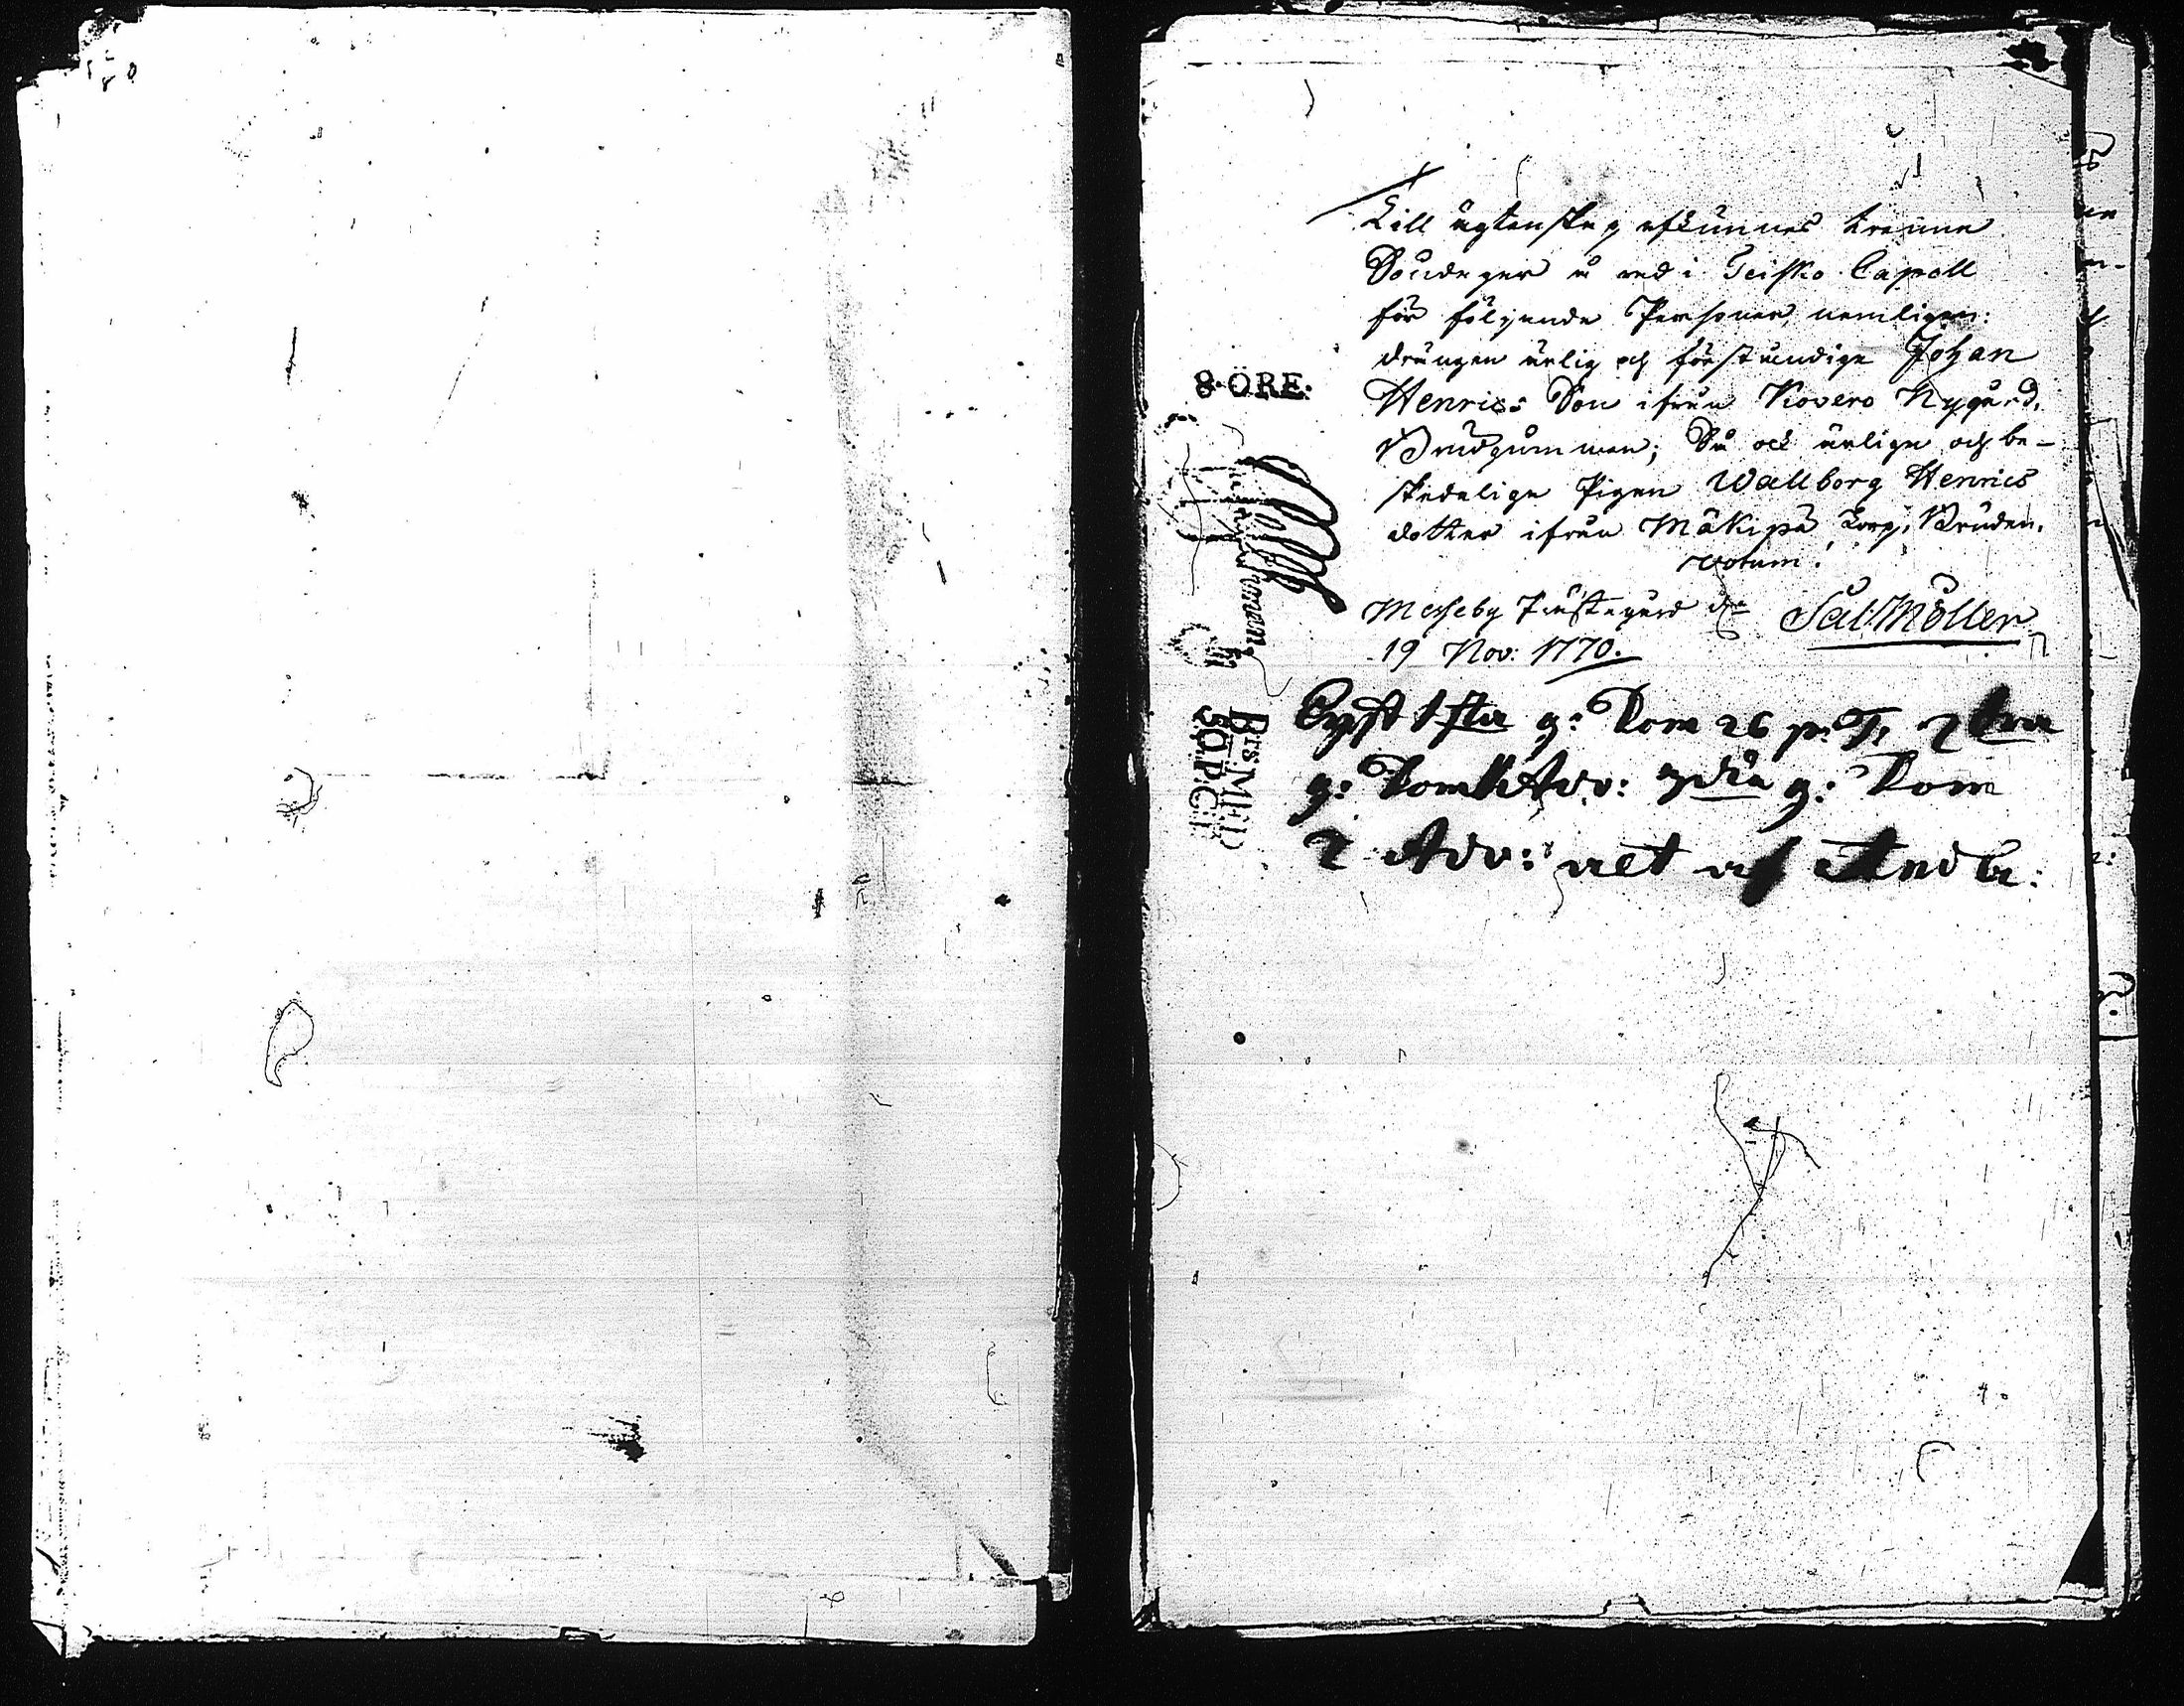 Till ägtenskap afkunnas trenne
Söndagar å rad i Teisko Capell
för följande Personer, nemligen:
drängen ärlig och förståndige Johan
Henrics Son ifrån Kovero Nygård,
8·ÖRE:
Brudgummen; Så ock ärliga och be-
skedeliga Pigan Wallborg Henrics
dotter ifrån Mäkipä Torp, Bruden.
Votum!
Messeby Prästegård d.
Sal. Möller
19 Nov: 1770.
Lyst 1sta g: Dom 26 p. T, 2dra
g: Dom 1 Adv: 3dia g: Dom
2 Adv: af